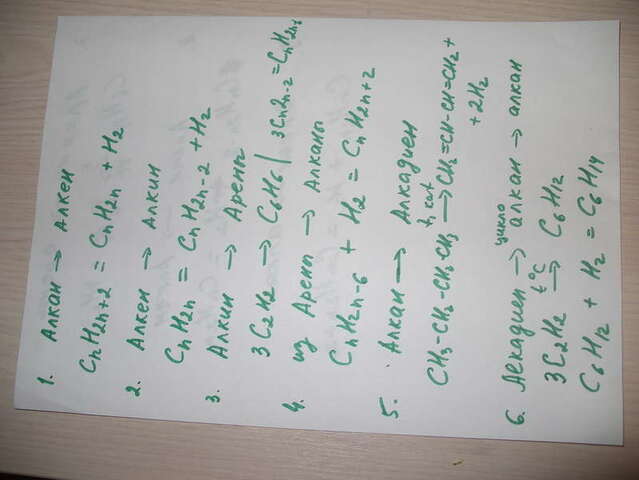 1. Алкан → Алкен
CnH2n+2 = CnH2n + H2
2. Алкен → Алкин
CnH2n = CnH2n-2 + H2
3. Алкин → Арены
3C2H2 → C6H6 | 3Cn2n-2 = CnH2n6
4. из Арены → Алканы
CnH2n-6 + H2 = CnH2n+2
5. Алкан → Алкадиен
t, cat
CH3-CH2-CH2-CH3 → CH2=CH-CH=CH2 +
+ 2H2
цикло
6. Алкадиен → алкан → алкан
3C2H2 t°C → C6H12
C6H12 + H2 = C6H14